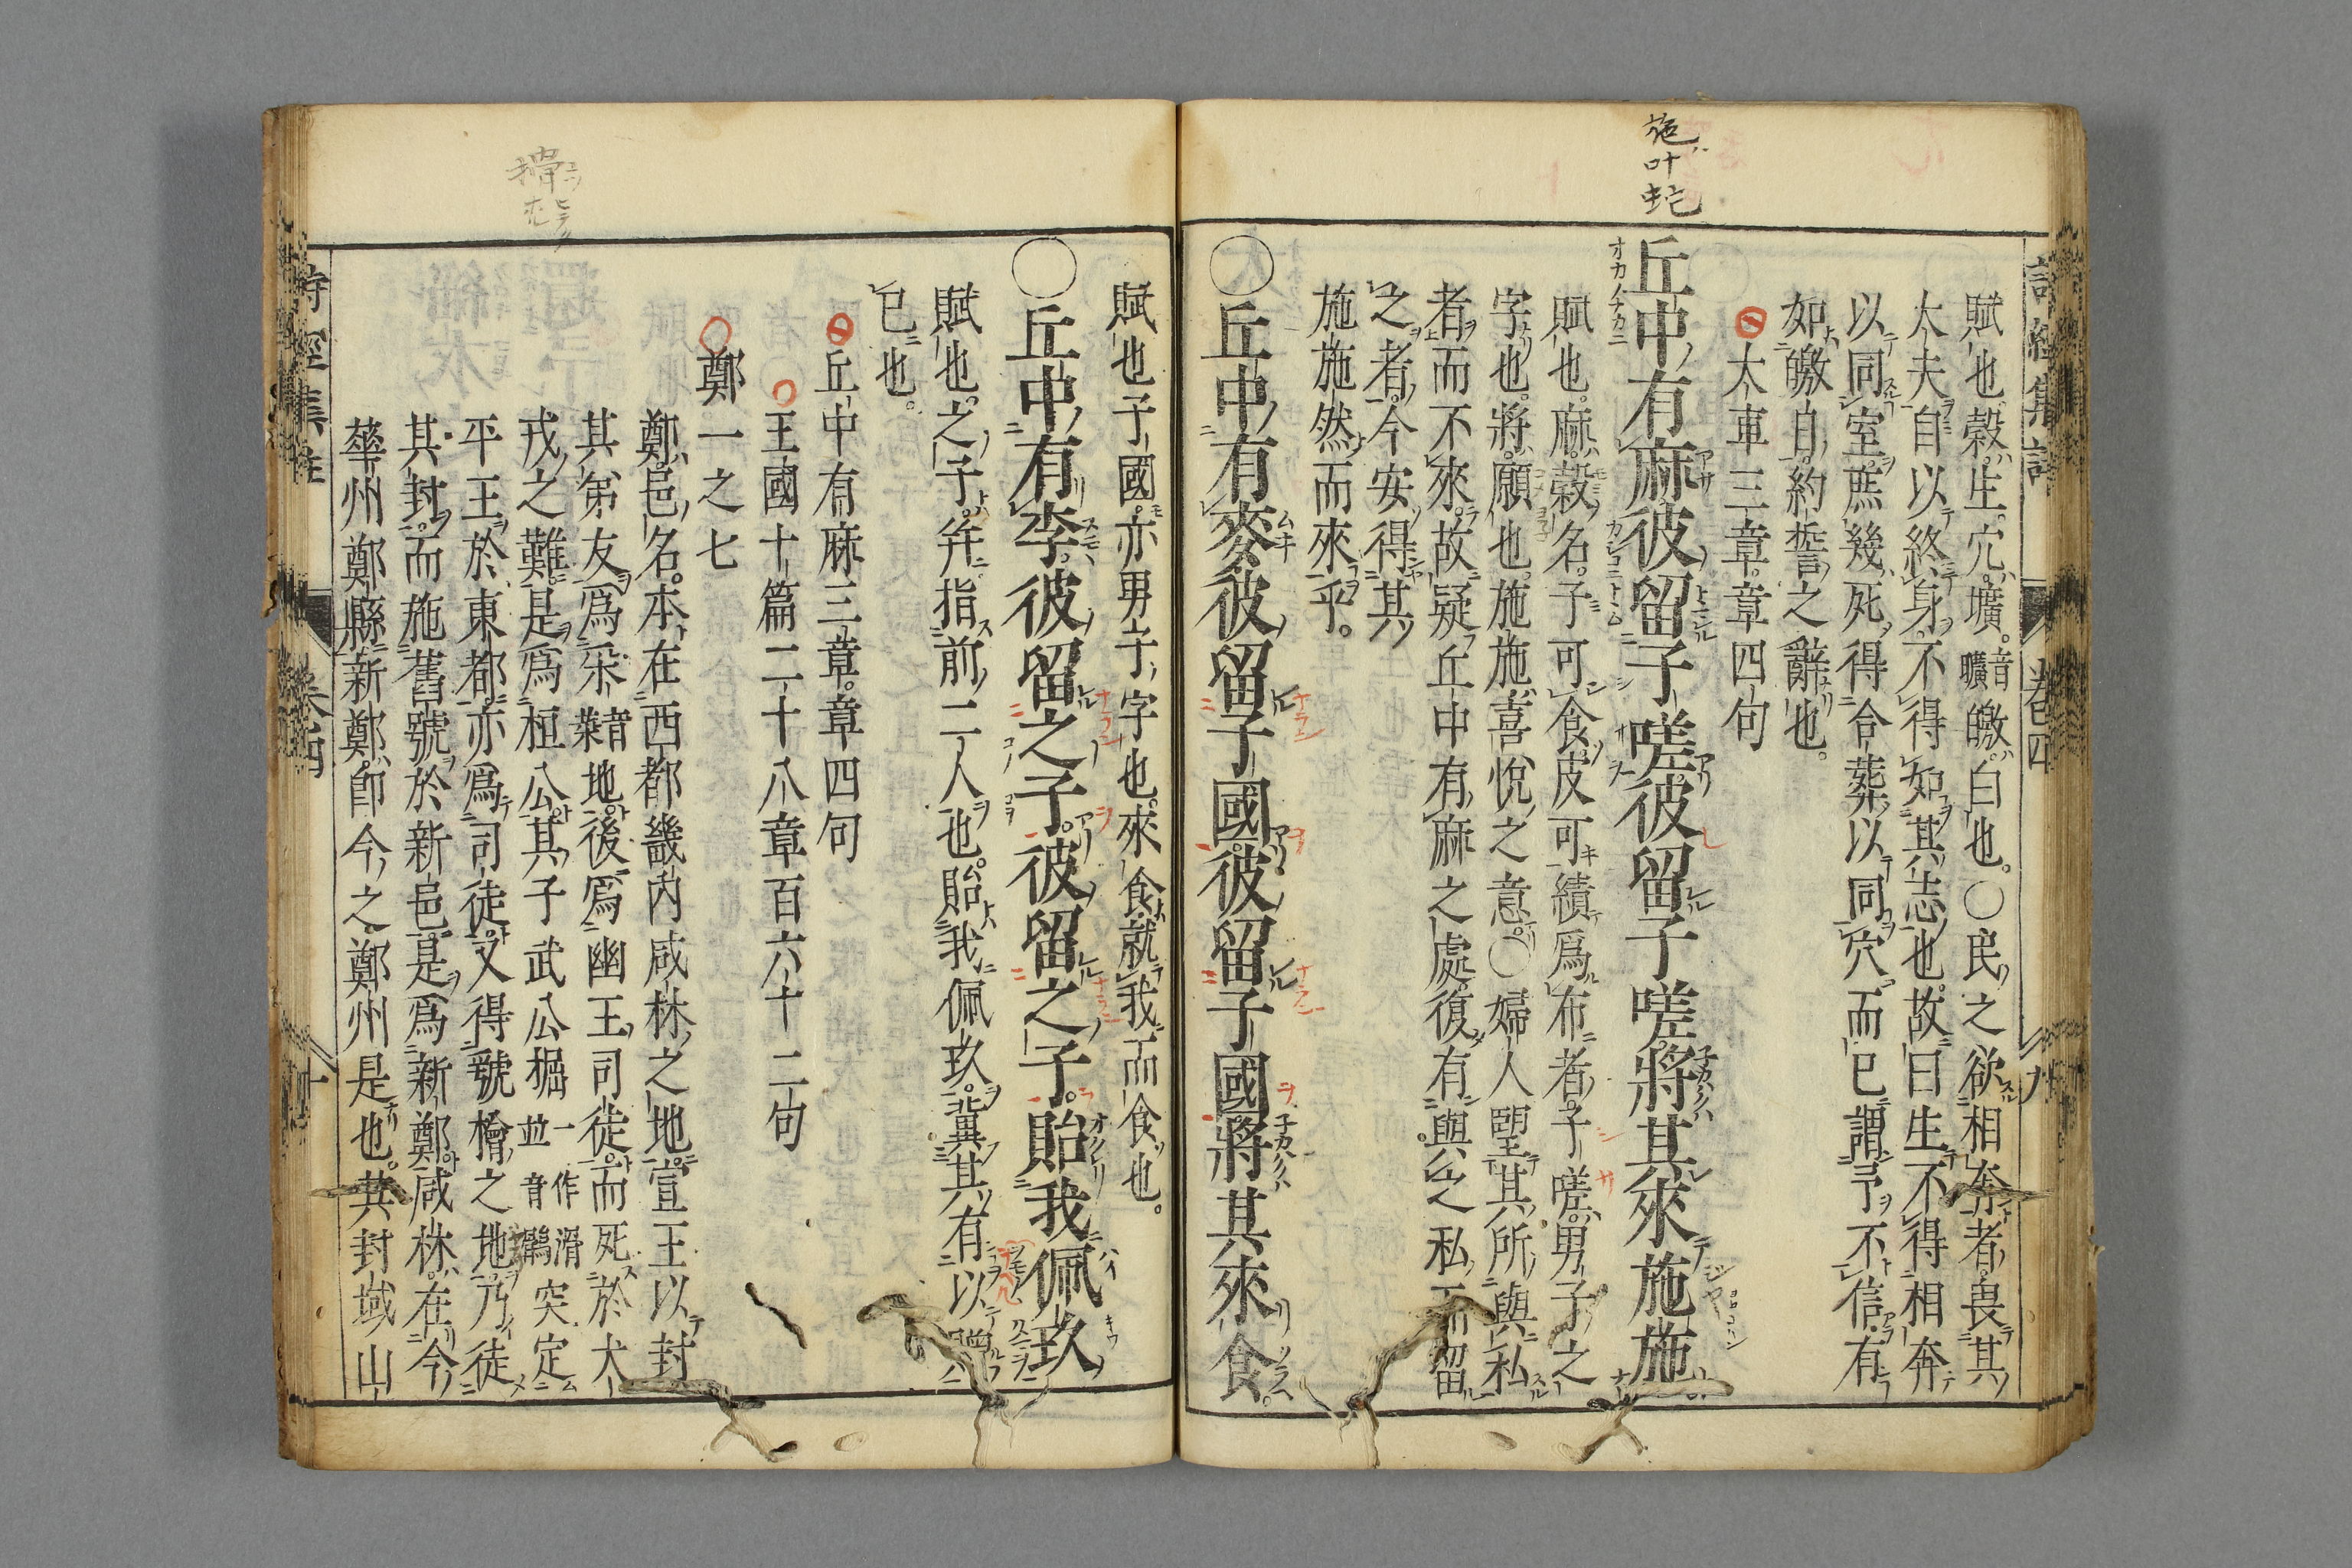 施叶蛇
賦也。穀生。穴壙。音曠皦白也。○民之欲相奔者畏其
大夫自以終身不得如其志也。故曰生不得相奔
以同室。庶幾死得合葬以同穴而已謂予不信有
如皦日。約誓之辭也。
大車三章章四句
丘中有麻彼留子嗟彼留子嗟將其來施施
賦也。麻穀名。子可食皮可績爲布者。子嗟男子之
字也。將願也。施施喜悅之意。○婦人望其所與私
者而不來。故疑丘中有麻之處復有與之私而留
之者。今安得其
施施然而來乎。
○丘中有麥彼留子國彼留子國將其來食。
賦也子國亦男子字也。來食就我而食也。
○丘中有李。彼留之子。彼留之子。貽我佩玖
賦也。之子并指前二人也。貽我佩玖。冀其有以贈
已也。
丘中有麻三章。章四句
王國十篇二十八章百六十二句
鄭一之七
鄭邑名。本在西都畿內咸林之地。宣王以封
其弟友爲采音菜地。後爲幽王司徒。而死於犬
戎之難。是爲桓公。其子武公掘一作滑並音鶻突定
平王於東都。亦爲司徒。又得號檜之地。乃徙
其封。而施舊號於新邑。是爲新鄭。咸林在今
華州鄭縣。新鄭即今之鄭州是也。其封域山
詩經集註
卷四
九
十